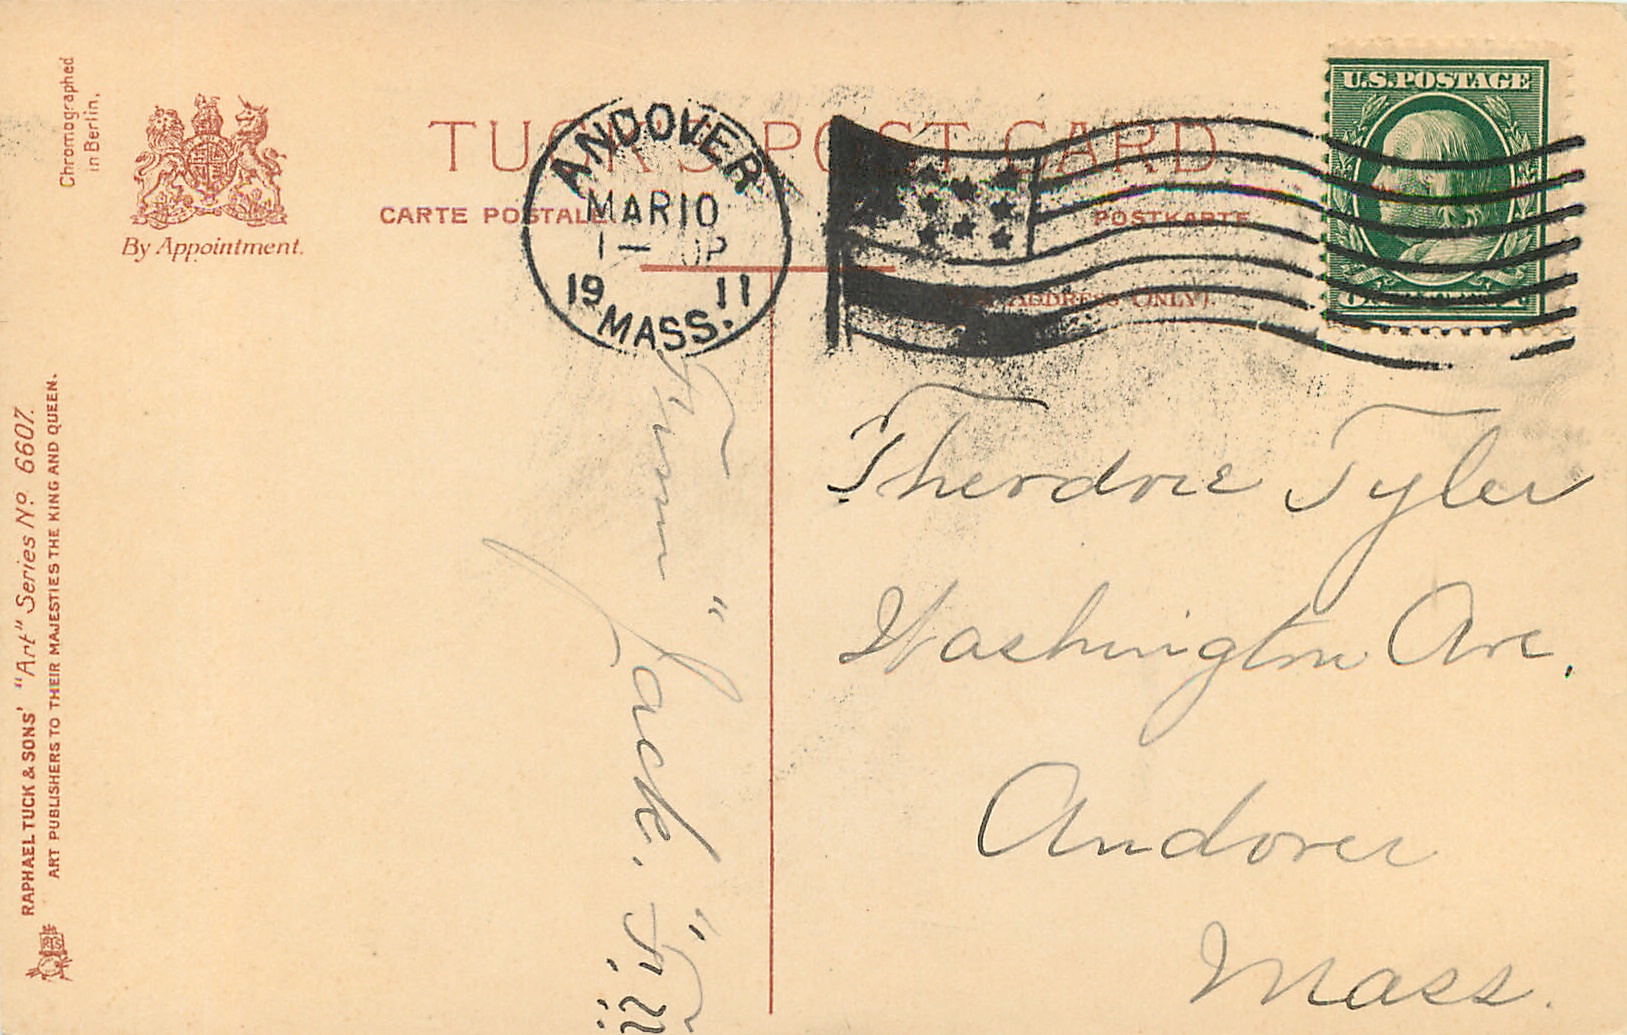 Chromographed
in Berlin.
By Appointment.
TUCK'S POST CARD
CARTE POSTALE
POSTKARTE
ADDRESS ONLY).
ANDOVER
MAR 10
1 —
19 11
MASS.
U.S. POSTAGE
RAPHAEL TUCK & SONS' "Art" Series No. 6607.
ART PUBLISHERS TO THEIR MAJESTIES THE KING AND QUEEN.
From "Jack."
Theodore Tyler
Washington Ave.
Andover
Mass.